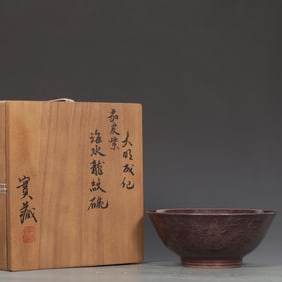 大明成化
茄皮紫
海水龍紋碗
寶藏